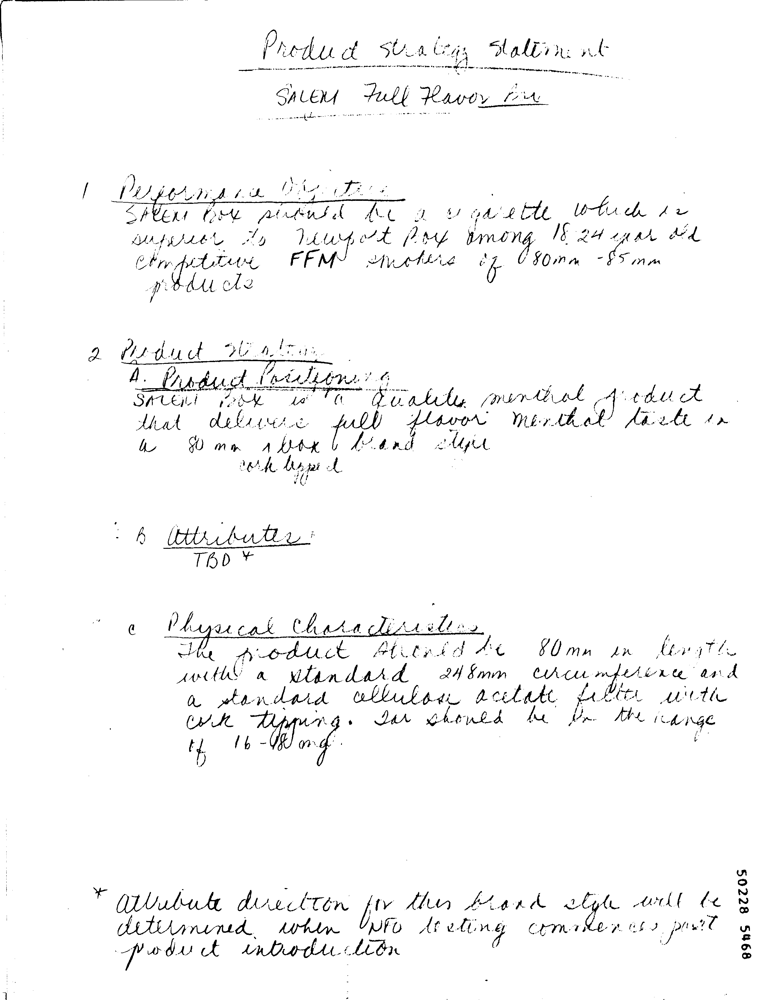 Product Strategy Statement
SALEM Full Flavor Box
1 Performance Objective
SALEM Box should be a cigarette which is
superior to Newport Box among 18 24 year old
competitive FFM smokers of 80mm - 85mm
products
2 Product Strategy
A. Product Positioning
SALEM Box is a quality menthol product
that delivers full flavor menthol taste in
a 80 mm box brand style
cork tipped
B Attributes
TBD *
C Physical Characteristics
The product should be 80mm in length
with a standard 248mm circumference and
a standard cellulose acetate filter with
cork tipping. Tar should be in the range
of 16-18 mg.
* Attribute direction for this brand style will be
determined when NFO testing commences post
product introduction
50228 5468